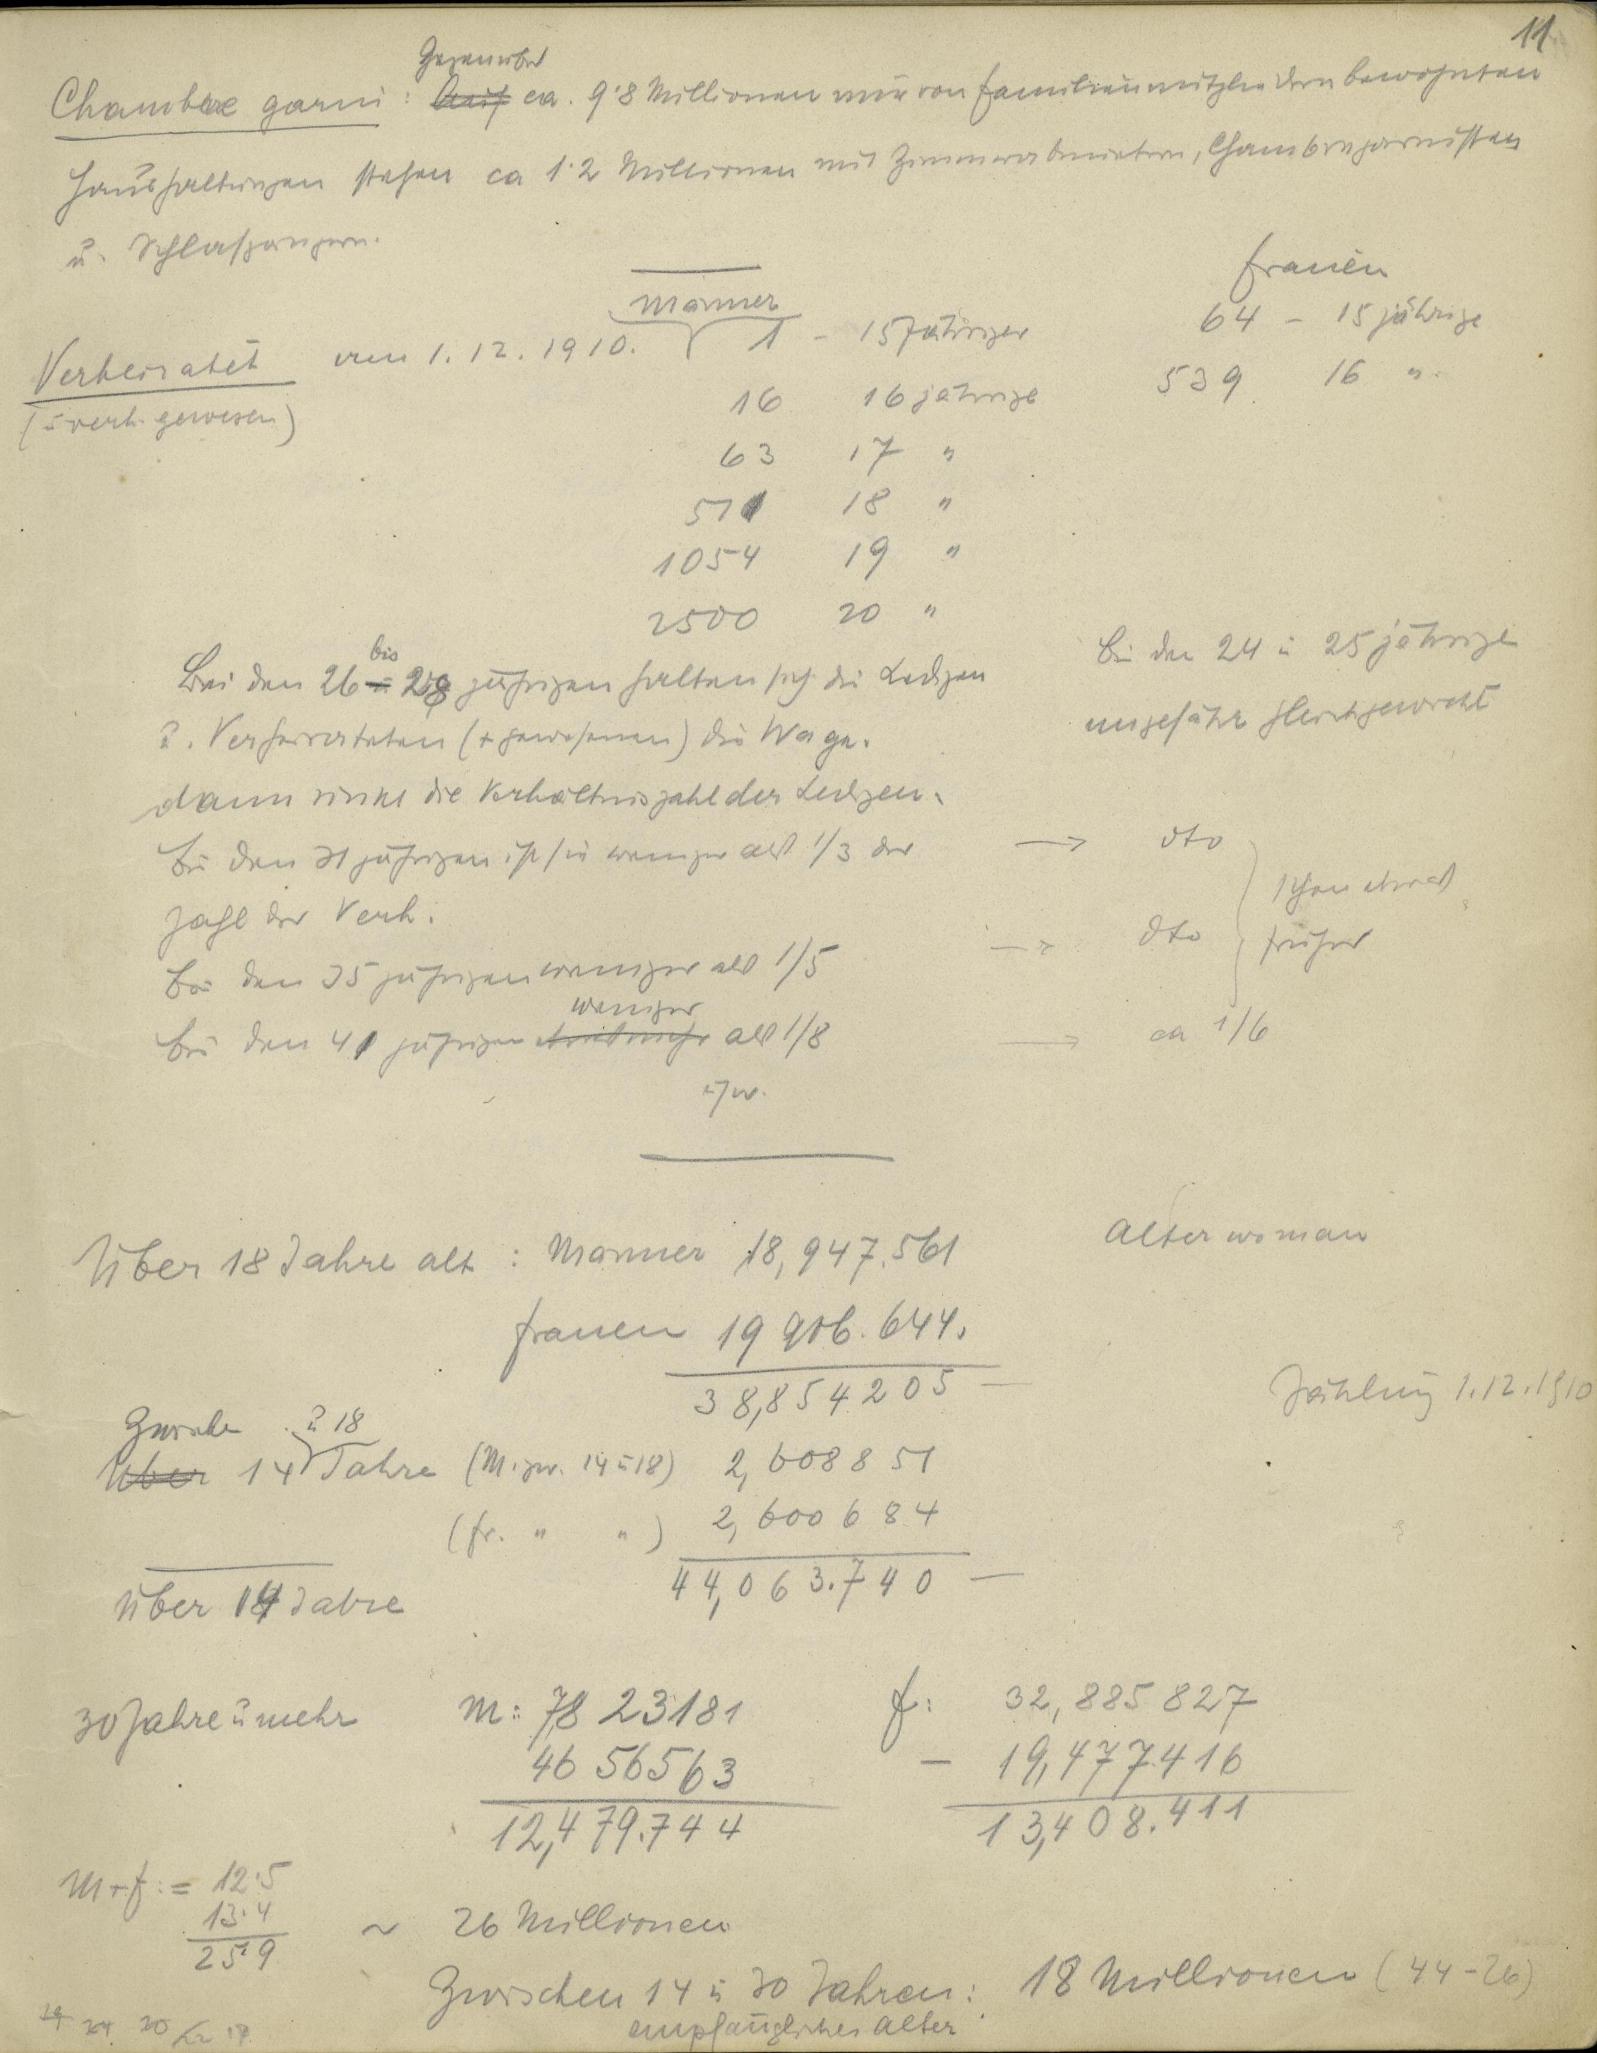 11
Gegenüber
Chambre garni : Auf ca. 9·8 Millionen nur von Familienmitgliedern bewohnten
Haushaltungen stehen ca 1·2 Millionen mit Zimmerabmietern, Chambregarnisten
u. Schlafgängern.
Männer
Frauen
Verheiratet am 1.12.1910. 1 - 15 jähriger 64 - 15 jährige
(u verh. gewesen) 16 16 jährige 539 16 "
63 17 "
511 18 "
1054 19 "
2500 20 "
bis
Bei den 26 u 28 jährigen halten sich die Ledigen
u. Verheirateten (+ gewesenen) die Wage.
Bei den 24 u 25 jährige
ungefähr Gleichgewicht
dann sinkt die Verhältniszahl der Ledigen.
bei den 31 jährigen ist sie weniger als 1/3 der → dto
Zahl der Verh.
schon etwas
früher
bei den 35 jährigen weniger als 1/5 → dto
weniger
bei den 41 jährigen als 1/8 → ca 1/6
usw.
Über 18 Jahre alt : Männer 18,947.561
Alter woman
Frauen 19 906.644.
38,854205 —
Zählung 1.12.1910
Zwischen u 18
Über 14 Jahre (M. zw. 14 u 18) 2,608851
(Fr. " " ) 2,600684
44,063.740 —
Über 14 Jahre
30 Jahre u mehr M: 7823181 F: 32,885827
4656563 — 19,477416
12,479.744 13,408.411
M+F: = 12·5
13·4
25·9 ~ 26 Millionen
Zwischen 14 u 30 Jahren: 18 Millionen (44-26)
empfängliches Alter